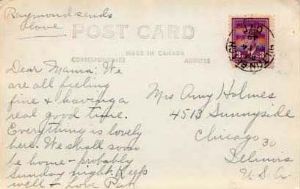 Raymond sends
love
POST CARD
MADE IN CANADA
CORRESPONDENCE
ADDRESS
Dear Mama: We
are all feeling
fine & having a
real good time.
Everything is lovely
here. We shall soon
be home - probably
Sunday night. Keep
well - love
Mrs Amy Holmes
4513 Sunnyside
Chicago 30
Illinois
U.S.A.
3
3